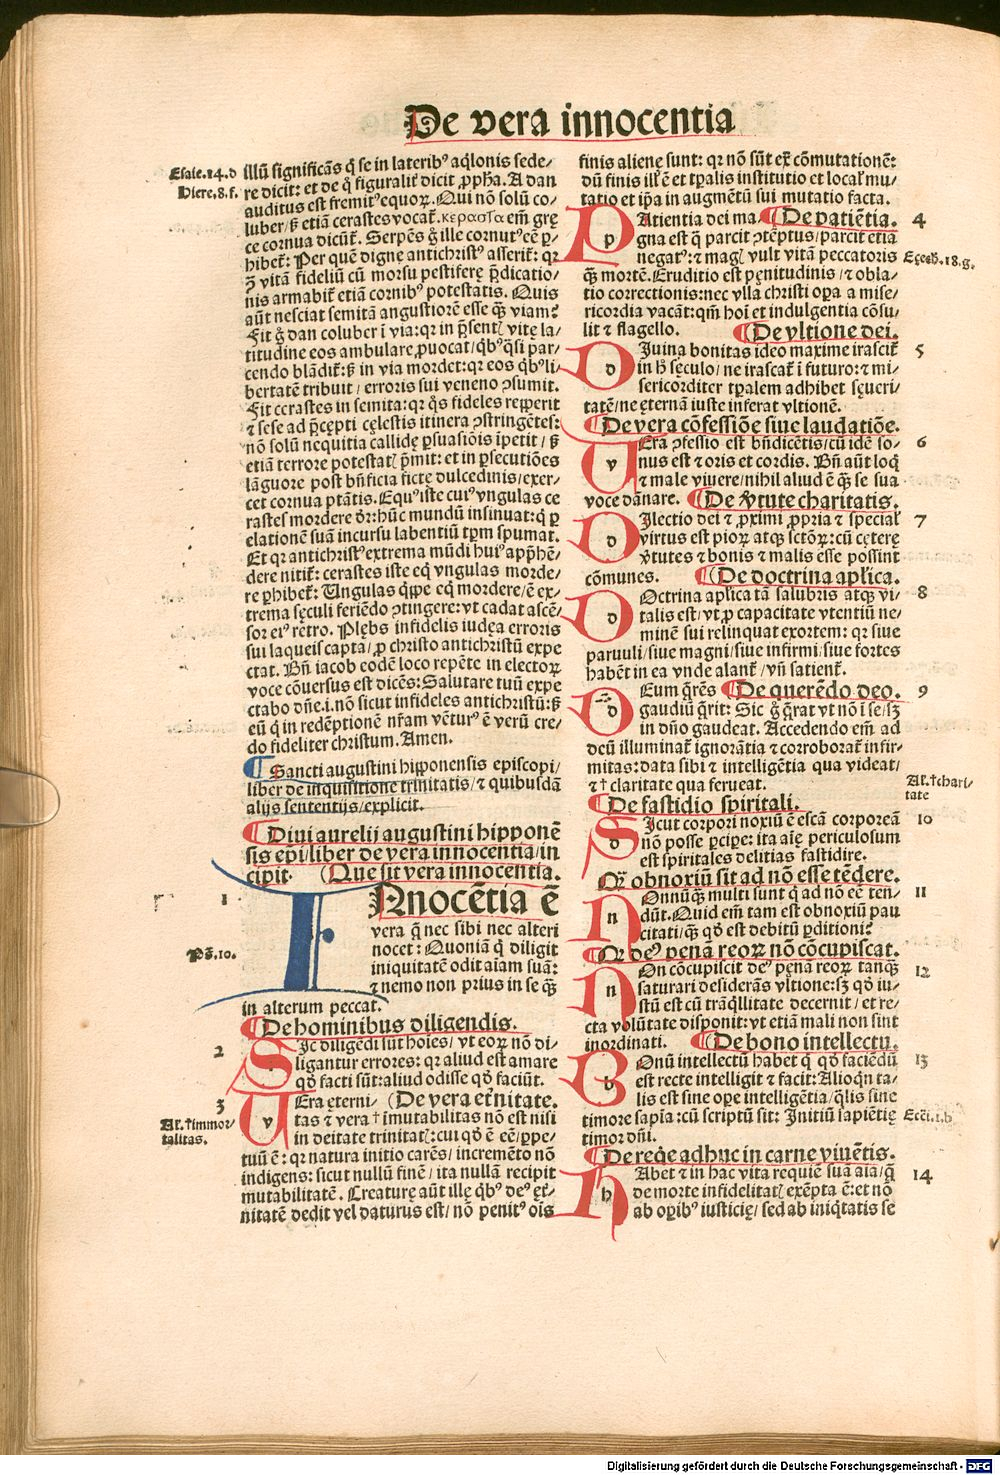 De vera innocentia
Esaie.14.d
Hiere.8.f.
illũ significãs q̃ se in laterib⁹ aq̃lonis sede/
re dicit: et de q̃ figuralit̃ dicit ꝓpha. A dan
auditus est fremit⁹ equoꝝ. Qui nõ solũ co/
luber/ ß etiã cerastes vocat̃. κεραστα em̃ gre
ce cornua dicũt̃. Serpẽs g̃ ille cornut⁹ eẽ ꝑ/
hibet̃: Per quẽ digne antichrist⁹ asserit̃: qꝛ
ꝯ̃ vitã fideliũ cũ morsu pestifere p̃dicatio/
nis armabit̃ etiã cornib⁹ potestatis. Quis
aũt nesciat semitã angustiorẽ esse q̃ꝫ viam?
Fit g̃ dan coluber ĩ via: qꝛ in p̃senti vite la/
titudine eos ambulare ꝓuocat/ q̃b⁹ q̃si par/
cendo blãdit̃: ß in via mordet: qꝛ eos q̃b⁹ li/
bertatẽ tribuit/ erroris sui veneno ꝯsumit.
Fit cerastes in semita: qꝛ q̃s fideles rep̃perit
⁊ sese ad p̃cepti celestis itinera ꝯstringẽtes:
nõ solũ nequitia callide ꝑsuasiõis ĩpetit/ ß
etiã terrore potestat̃ p̃mit: et in ꝑsecutiões
lãguore post bñficia ficte dulcedinis/ exer/
cet cornua ptãtis. Equ⁹ iste cui⁹ vngulas ce
rastes mordere dr̃: hũc mundũ insinuat: q̃ ꝑ
elationẽ suã incursu labentiũ tp̃m spumat.
Et qꝛ antichrist⁹ extrema mũdi hui⁹ app̃hẽ/
dere nitit̃: cerastes iste eq̃ vngulas morde/
re ꝑhibet̃: Ungulas q̃ppe eq̃ mordere/ ẽ ex/
trema seculi feriẽdo ꝯtingere: vt cadat ascẽ/
sor ei⁹ retro. Plebs infidelis iudea erroris
sui laqueis capta/ ꝓ christo antichristũ expe
ctat. Bñ iacob eodẽ loco repẽte in electoꝝ
voce cõuersus est dicẽs: Salutare tuũ expe
ctabo dñe.i. nõ sicut infideles antichristũ: ß
eũ q̃ in redẽptionẽ nr̃am vẽtur⁹ ẽ verũ cre/
do fideliter christum. Amen.
¶ Sancti augustini hipponensis episcopi/
liber de inquisitione trinitatis/ ⁊ quibusdã
alijs sententijs/ explicit.
¶ Diui aurelij augustini hipponẽ
sis ep̃i/ liber de vera innocentia/ in
cipit. (Que sit vera innocentia.
1
INnocẽtia ẽ
vera q̃ nec sibi nec alteri
nocet: Quoniã q̃ diligit
Pš.10.
iniquitatẽ odit aĩam suã:
⁊ nemo non prius in se q̃ꝫ
in alterum peccat.
¶ De hominibus diligendis.
2
SIc diligẽdi sũt hoĩes/ vt eoꝝ nõ di/
ligantur errores: qꝛ aliud est amare
qd̃ facti sũt: aliud odisse qd̃ faciũt.
3
VEra eterni/ (De vera et̃nitate.
Al̃. †immor/
talitas.
tas ⁊ vera † ĩmutabilitas nõ est nisi
in deitate trinitat̃: cui qd̃ ẽ eẽ/ ꝑpe/
tuũ ẽ: qꝛ natura initio carẽs/ incremẽto nõ
indigens: sicut nullũ finẽ/ ita nullã recipit
mutabilitatẽ. Creature aũt ille q̃b⁹ de⁹ et̃/
nitatẽ dedit vel daturus est/ nõ penit⁹ oĩs
finis aliene sunt: qꝛ nõ sũt ex̃ cõmutationẽ:
dũ finis ill̃ ẽ et tꝑalis institutio et local̃ mu/
tatio et ip̃a in augmẽtũ sui mutatio facta.
4
PAtientia dei ma/ ¶ De patiẽtia.
gna est q̃ parcit ꝯtẽptus/ parcit etiã
Ezech.18.g.
negat⁹: ⁊ mag̃ vult vitã peccatoris
q̃ꝫ mortẽ. Eruditio est penitudinis/ ⁊ obla/
tio correctionis: nec vlla christi oꝑa a mise/
ricordia vacãt: qm̃ hoĩ et indulgentia cõsu/
lit ⁊ flagello. ¶ De vltione dei.
5
DIuina bonitas ideo maxime irascit̃
in h̃ seculo/ ne irascat̃ ĩ futuro: ⁊ mi/
sericorditer tꝑalem adhibet seueri/
tatẽ/ ne eternã iuste inferat vltionẽ.
¶ De vera cõfessiõe siue laudatiõe.
6
VEra ꝯfessio est bñdicẽtis/ cũ idẽ so/
nus est ⁊ oris et cordis. Bñ aũt loq̃
⁊ male viuere/ nihil aliud ẽ q̃ꝫ se sua
voce dãnare. ¶ De ṽtute charitatis.
7
DIlectio dei ⁊ ꝓximi ꝓpria ⁊ special̃
virtus est pioꝝ atqꝫ sctõꝝ: cũ cetere
ṽtutes ⁊ bonis ⁊ malis esse possint
cõmunes. ¶ (De doctrina apl̃ica.
8
DOctrina apl̃ica tã salubris atqꝫ vi/
talis est/ vt ꝓ capacitate vtentiũ ne/
minẽ sui relinquat exortem: qꝛ siue
paruuli/ siue magni/ siue infirmi/ siue fortes
habẽt in ea vnde alant̃/ vñ satient̃.
9
DEum q̃rẽs ¶ De querẽdo deo.
gaudiũ q̃rit: Sic g̃ q̃rat vt nõ ĩ se/ sꝫ
in dño gaudeat. Accedendo em̃ ad
deũ illuminat̃ ignorãtia ⁊ corroborat̃ infir/
mitas: data sibi ⁊ intelligẽtia qua videat/
Al̃. †chari/
tate
⁊ † claritate qua ferueat.
¶ De fastidio spiritali.
10
SIcut corpori noxiũ ẽ escã corporeã
nõ posse ꝑcipe: ita aĩe periculosum
est spiritales delitias fastidire.
Qꝛ obnoxiũ sit ad nõ esse tẽdere.
11
NOnnũqꝫ multi sunt q̃ ad nõ eẽ ten/
dũt. Quid em̃ tam est obnoxiũ pau
citati/ q̃ꝫ qd̃ est debitũ ꝑditioni?
¶ Qꝛ de⁹ penã reoꝝ nõ cõcupiscat.
12
NOn cõcupiscit de⁹ penã reoꝝ tanqꝫ
saturari desiderãs vltione: sꝫ qd̃ iu/
stũ est cũ trãq̃llitate decernit/ et re/
cta volũtate disponit: vt etiã mali non sint
inordinati. ¶ De bono intellectu.
13
BOnũ intellectũ habet q̃ qd̃ faciẽdũ
est recte intelligit ⁊ facit: Alioq̃n ta/
lis est sine oꝑe intelligẽtia/ q̃lis sine
Ecc̃i.1.b
timore sapĩa: cũ scriptũ sit: Initiũ sapiẽtie
timor dñi.
¶ De reqe adhuc in carne viuẽtis.
14
HAbet ⁊ in hac vita requiẽ sua aĩa/ q̃
de morte infidelitat̃ exẽpta ẽ: et nõ
ab oꝑib⁹ iusticie/ sed ab iniq̃tatis se
Digitalisierung gefördert durch die Deutsche Forschungsgemeinschaft - DFG